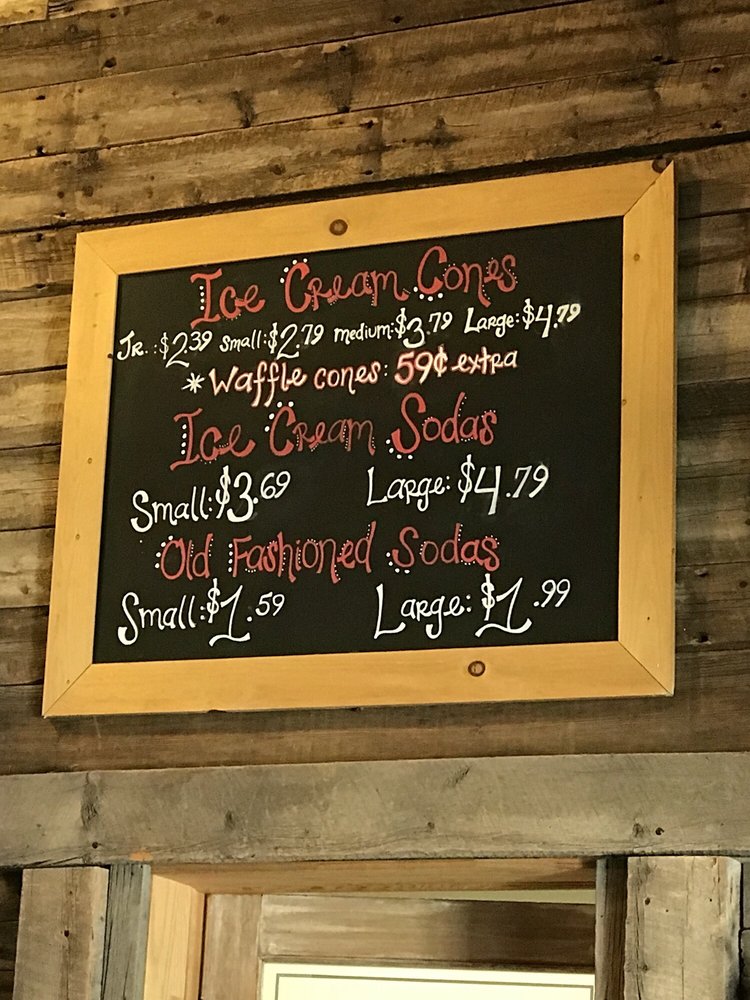 Ice Cream Cones
Jr.:$2.39 Small:$2.79 medium:$3.79 Large:$4.79
*Waffle cones: 59¢ extra
Ice Cream Sodas
Small:$3.69 Large:$4.79
Old Fashioned Sodas
Small:$1.59 Large:$1.99